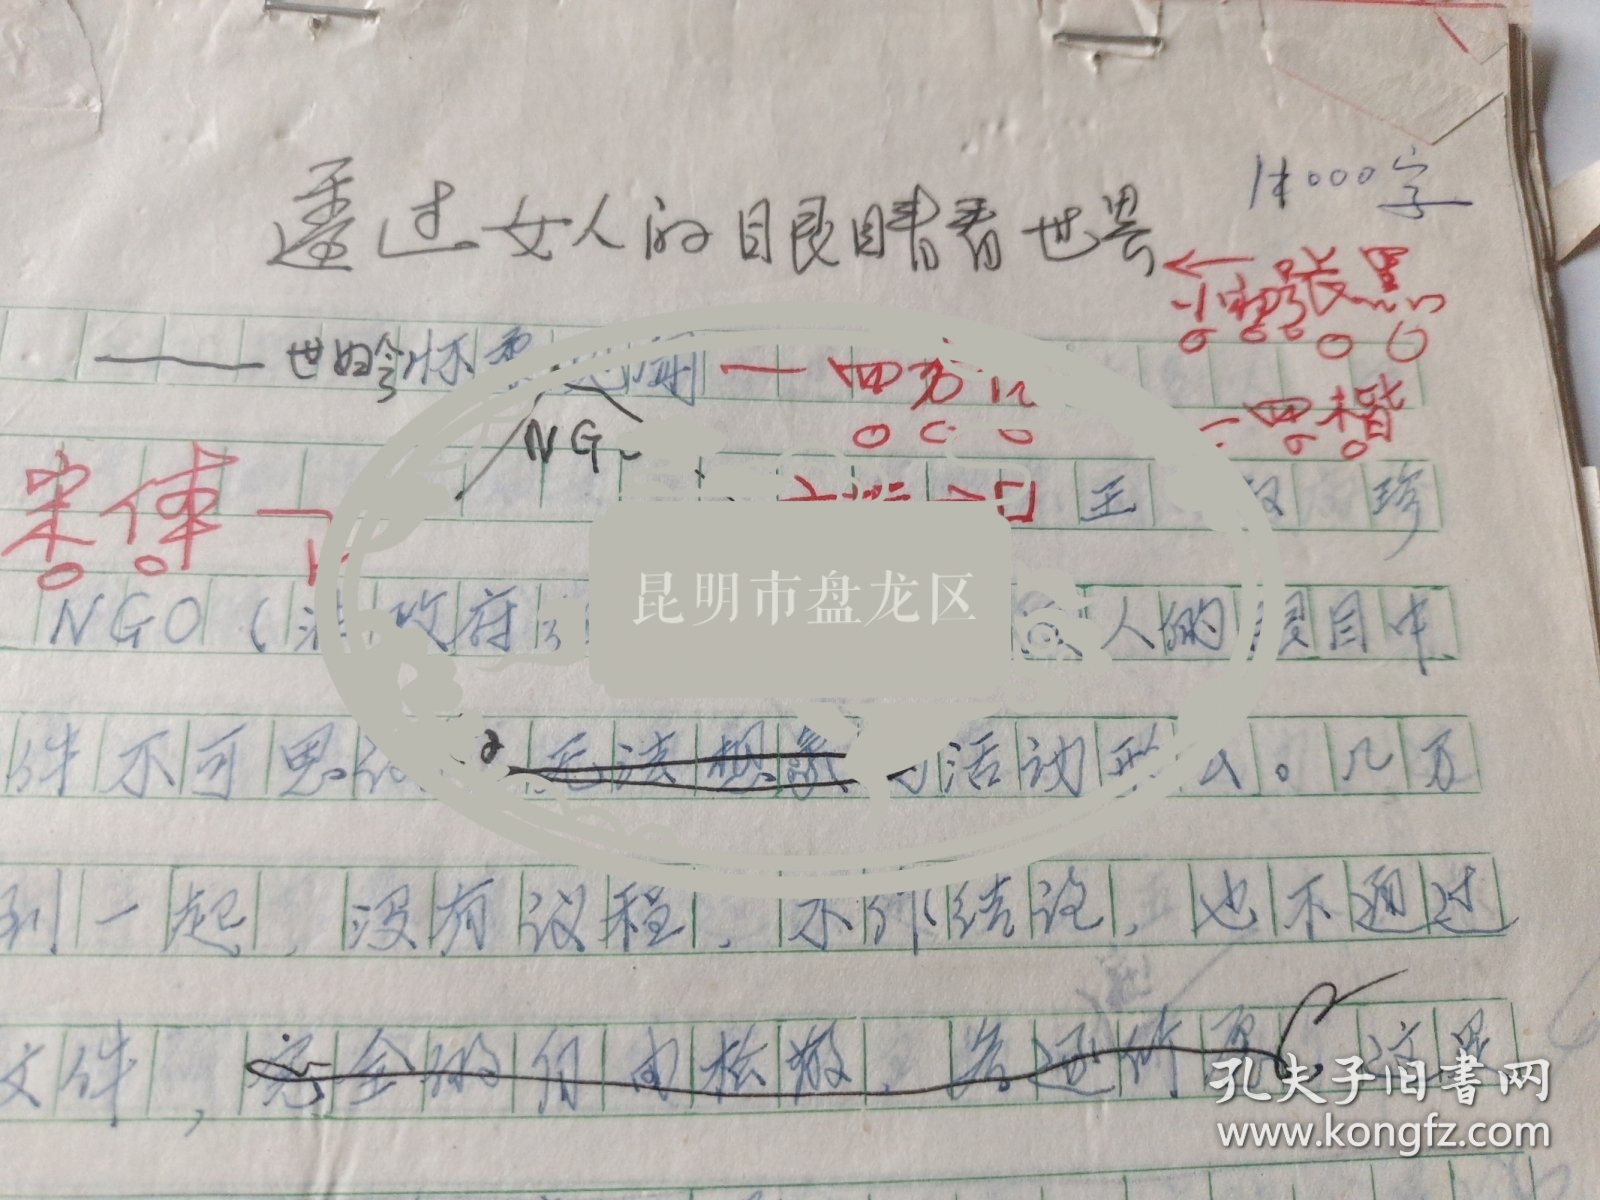 1.4000字
透过女人的眼睛看世界
小初号长黑
——世妇会怀柔
— 四方仿
NG
一四楷
宋体一
王 珍
NGO(非政府 人的眼目中
件不可思 无法想象的活动形式。几万
到一起,没有议程,不作结论,也不通过
文件,完全的自由松散, 这是
昆明市盘龙区
孔夫子旧书网
www.kongfz.com